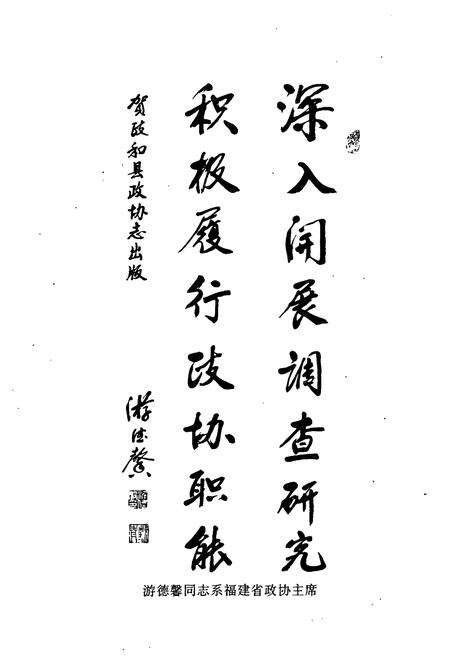 深入开展调查研究
积极履行政协职能
贺政和县政协志出版
游德馨
游德馨同志系福建省政协主席